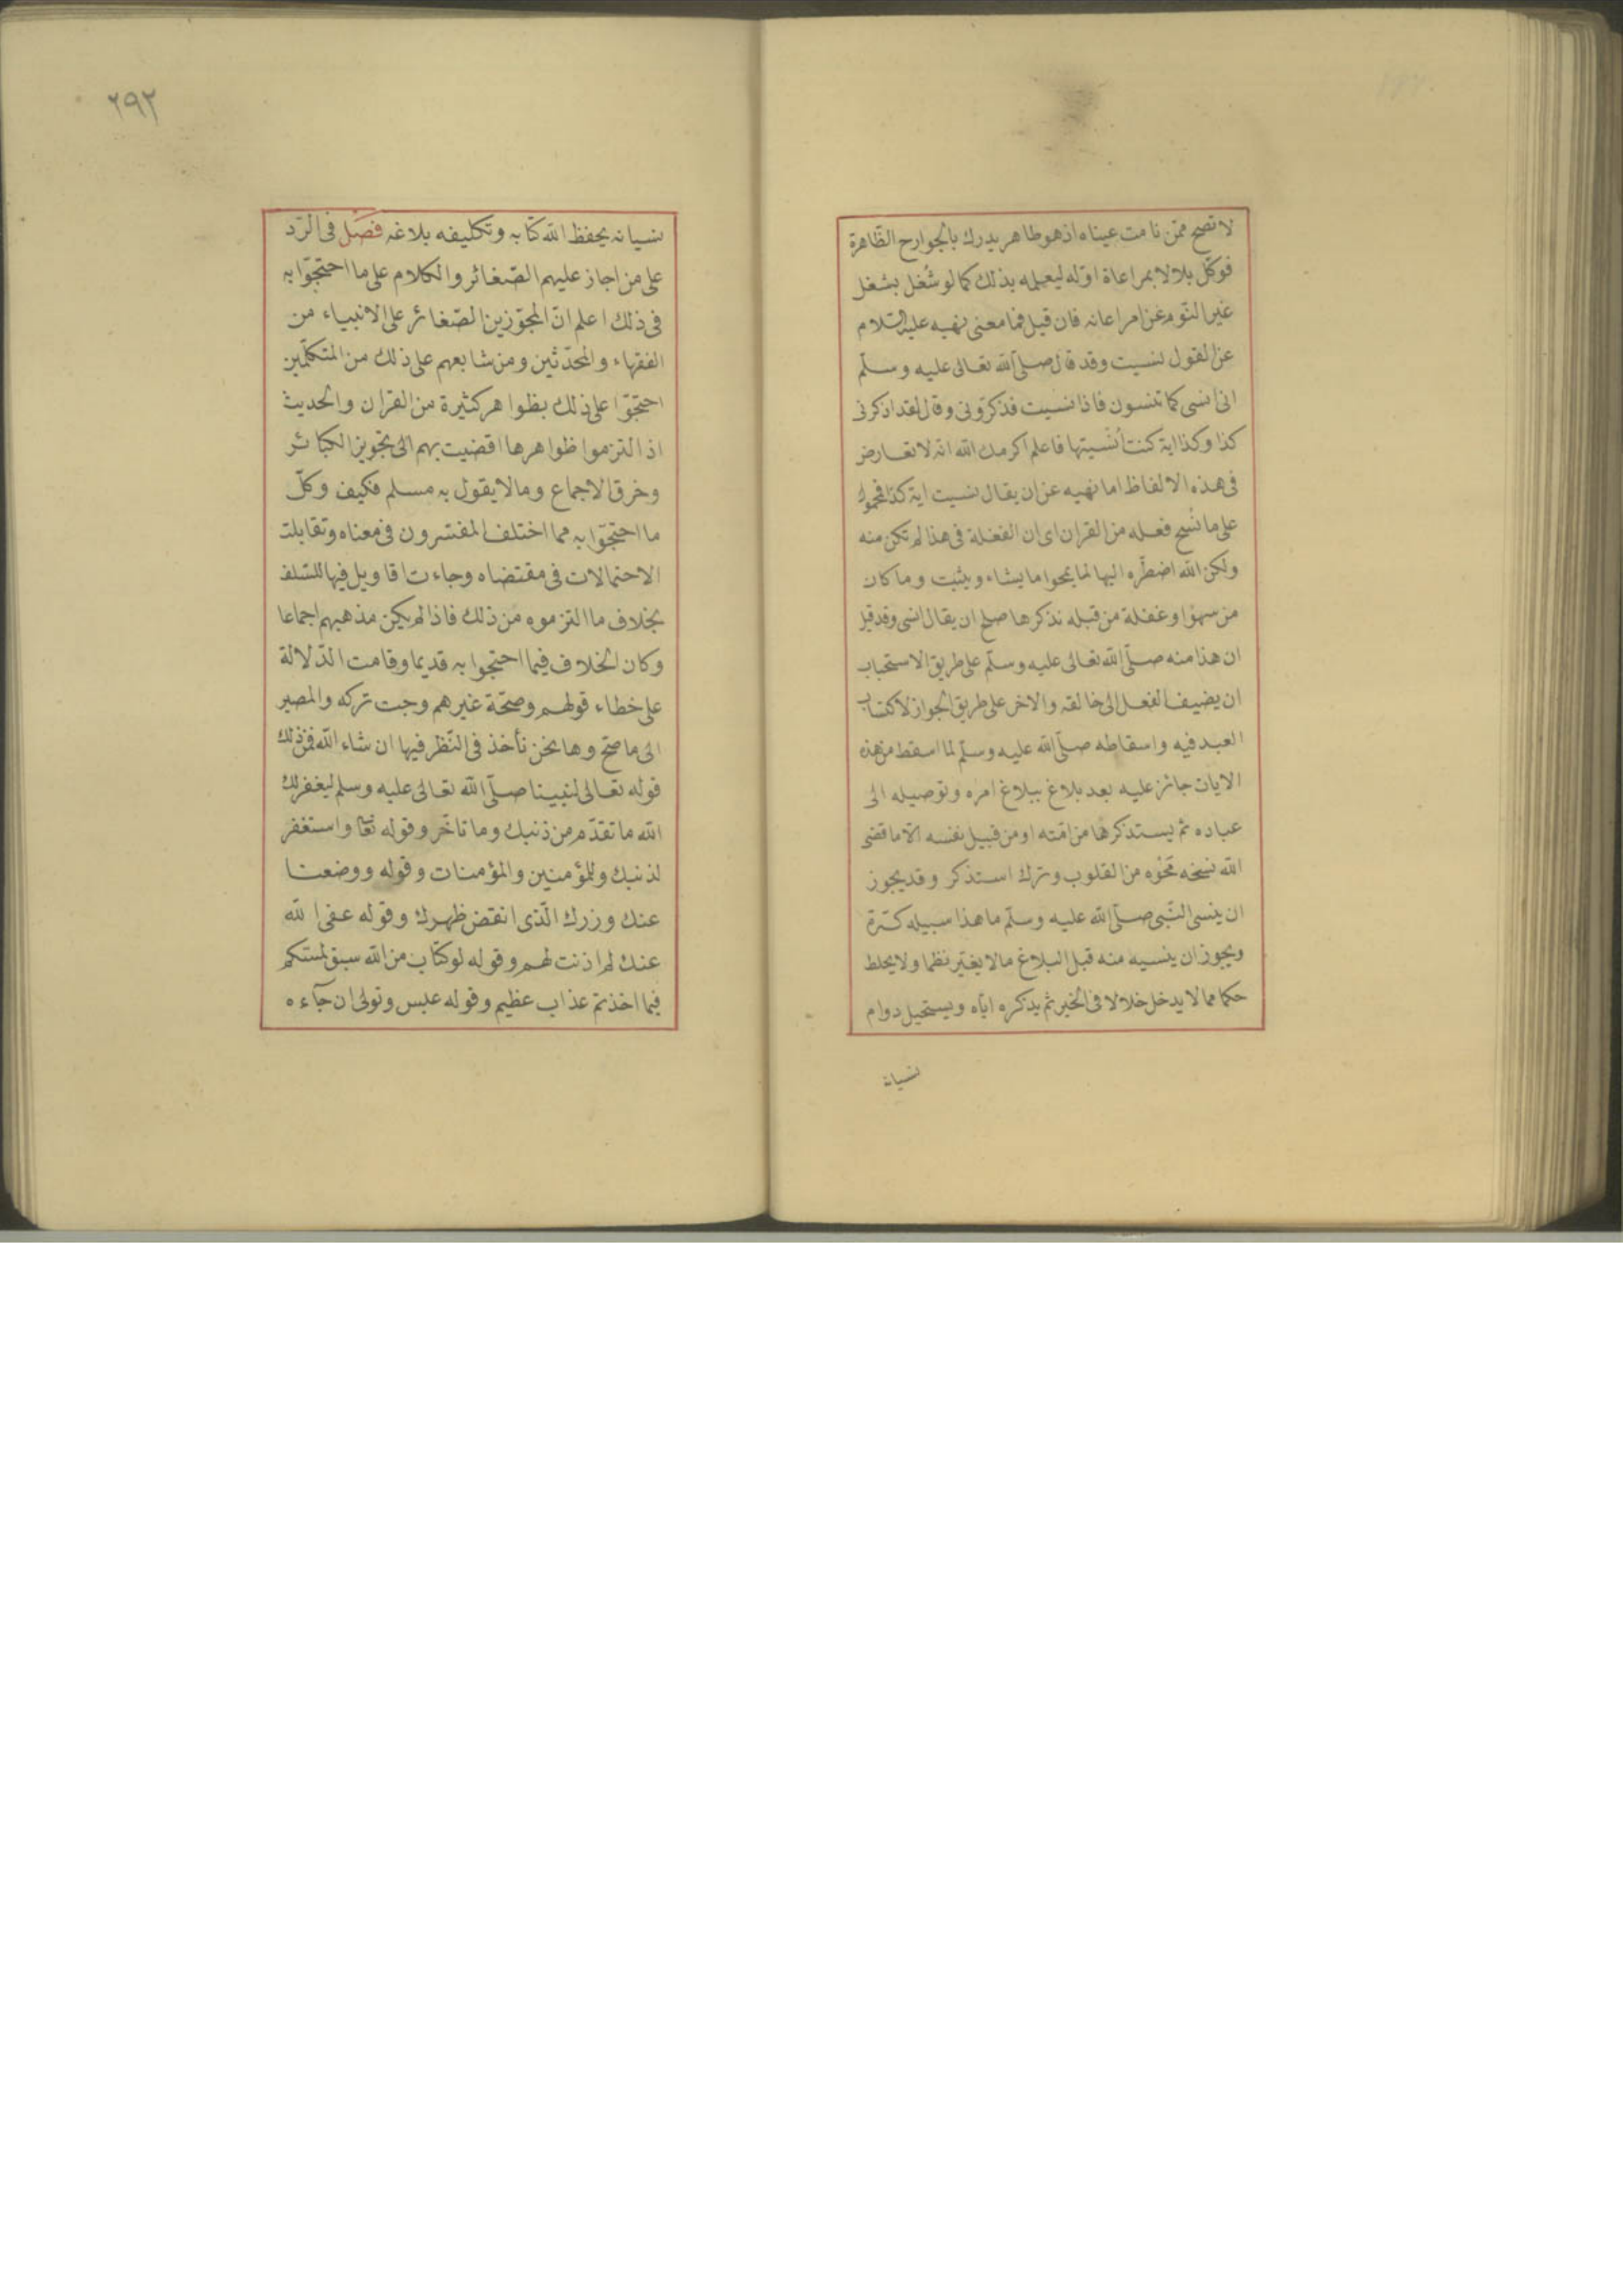 لا تصح ممن نامت عيناه اذ هو ظاهر يدرك بالجوارح الظّاهرة
فوكّل بلالا بمراعاة اوّله ليعمله بذلك كما لو شُغل بشغل
غير النّوم عن مراعاته فان قيل فما معنى نهيه عليه السّلام
عن القول نسيت وقد قال صلّى الله تعالى عليه وسلّم
انى انسى كما تنسون فاذا نسيت فذكرّونى وقال لقد اذكرنى
كذا وكذا اية كنت أُنْسيتها فاعلم اكرمك الله انّه لا تعارض
فى هذه الالفاظ اما نهيه عن ان يقال نسيت اية كذا فمحمول
على ما نُسخ فعله من القران اى ان الغفلة فى هذا لم تكن منه
ولكن الله اضطرّه اليها لما يمحوا ما يشاء ويثبت وما كان
من سهو او غفلة من قبله تذكرها صلح ان يقال انسى وقد قيل
ان هذا منه صلّى الله تعالى عليه وسلّم على طريق الاستحباب
ان يضيف الفعل الى خالقه والاخر على طريق الجواز لاكتساب
العبد فيه واسقاطه صلّى الله عليه وسلّم لما اسقط من هذه
الايات جائز عليه بعد بلاغ ببلاغ امره وتوصيله الى
عباده ثم يستذكرها من امّته او من قبيل نفسه الّا ما قضى
الله نسخه مَحْوَه من القلوب وترك استذكر وقد يجوز
ان ينسى النّبى صلّى الله عليه وسلّم ما هذا سبيله كرّة
ويجوز ان ينسيه منه قبل البلاغ ما لا يغيّر نظما ولا يخلط
حكما مما لا يدخل خللا فى الخبر ثم يذكره ايّاه ويستحيل دوام
نسيانه
٢٩٢
نسيانه بحفظ الله كتابه وتكليفه بلاغه فصَل فى الرّد
على من اجاز عليهم الصّغائر والكلام على ما احتجّوا به
فى ذلك اعلم انّ المجوّزين الصّغائر على الانبياء من
الفقهاء والمحدّثين ومن شايعهم على ذلك من المتكلّمين
احتجّوا على ذلك بظواهر كثيرة من القران والحديث
اذ التزموا ظواهرها افضيت بهم الى تجويز الكبائر
وخرق الاجماع وما لا يقول به مسلم فكيف وكلّ
ما احتجّوا به مما اختلف المفسّرون فى معناه وتقابلت
الاحتمالات فى مقتضاه وجاءت اقاويل فيها للسّلف
بخلاف ما التزموه من ذلك فاذا لم يكن مذهبهم اجماعا
وكان الخلاف فيما احتجوا به قديما وقامت الدّلالة
على خطاء قولهم وصحّة غيرهم وجت تركه والمصير
الى ما صحّ وها نحن نأخذ فى النّظر فيها ان شاء الله فمن ذلك
قوله تعالى لنبينا صلّى الله تعالى عليه وسلم ليغفر لك
الله ما تقدّم من ذنبك وما تاخّر وقوله تعا واستغفر
لذنبك وللمؤمنين والمؤمنات وقوله ووضعنا
عنك وزرك الّذى انقض ظهرك وقوله عفى الله
عنك لم اذنت لهم وقوله لو كتاب من الله سبق لمسّكم
فيما اخذتم عذاب عظيم وقوله عبس وتولى ان جآءه